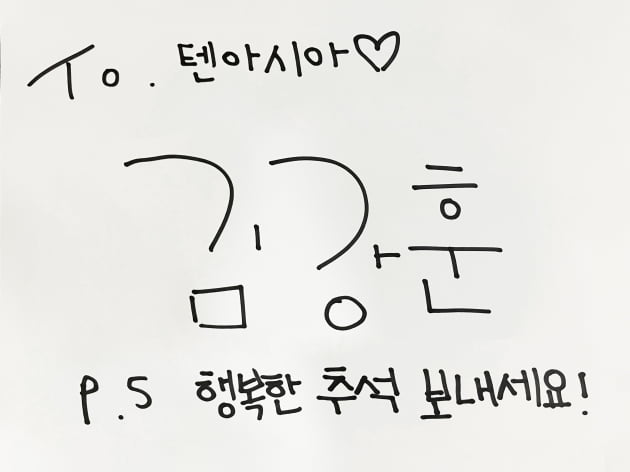 To. 텐아시아♡
김강훈
P.S 행복한 추석 보내세요!